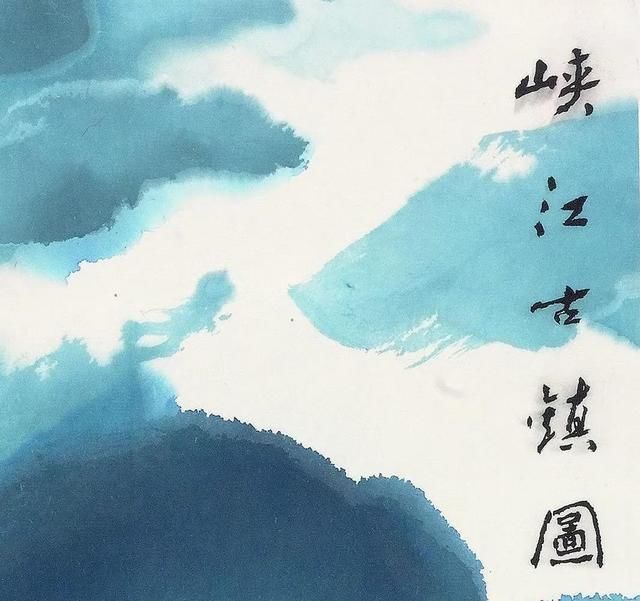 峡江古鎮圖